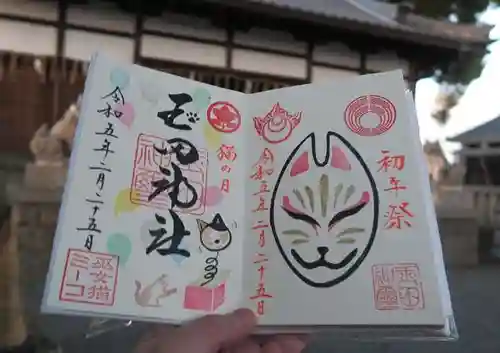 初午祭
令和五年二月二十五日
猫の月
玉田神社
令和五年二月二十五日
巫女猫
ミーコ